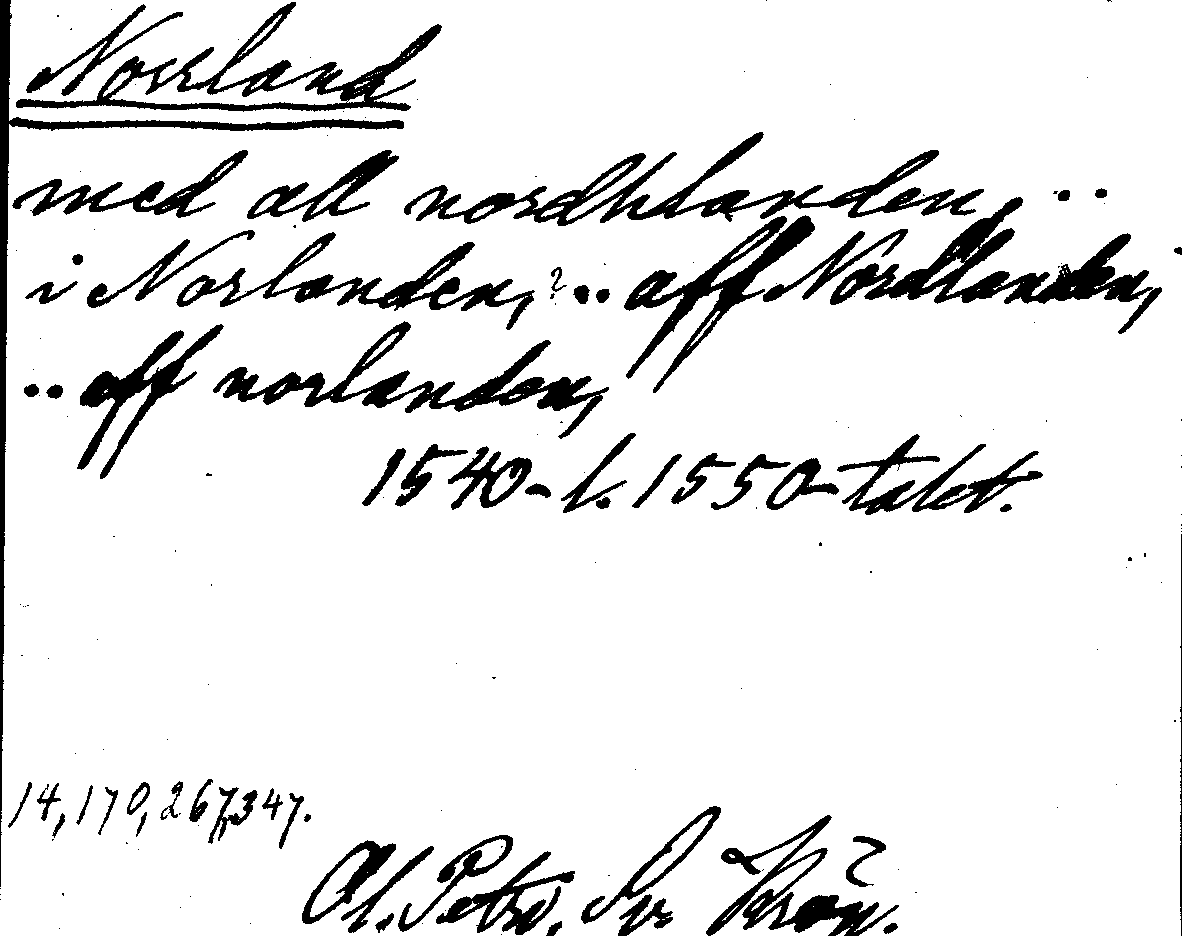 Norrland
med all nordhlanden, ..
i Norlanden, .. aff Nordlanden,
.. aff norlanden,
1540- l. 1550-talet.
14, 170, 267, 347.
Ol. Petri, Sv. Krön.